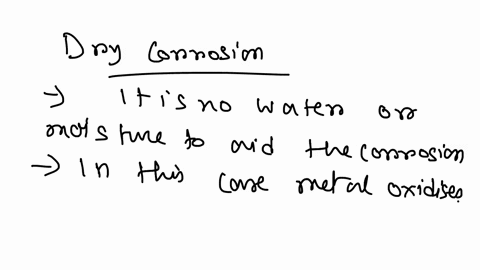 Dry Corrosion
→ It is no water or
moisture to aid the corrosion
→ In this case metal oxidises